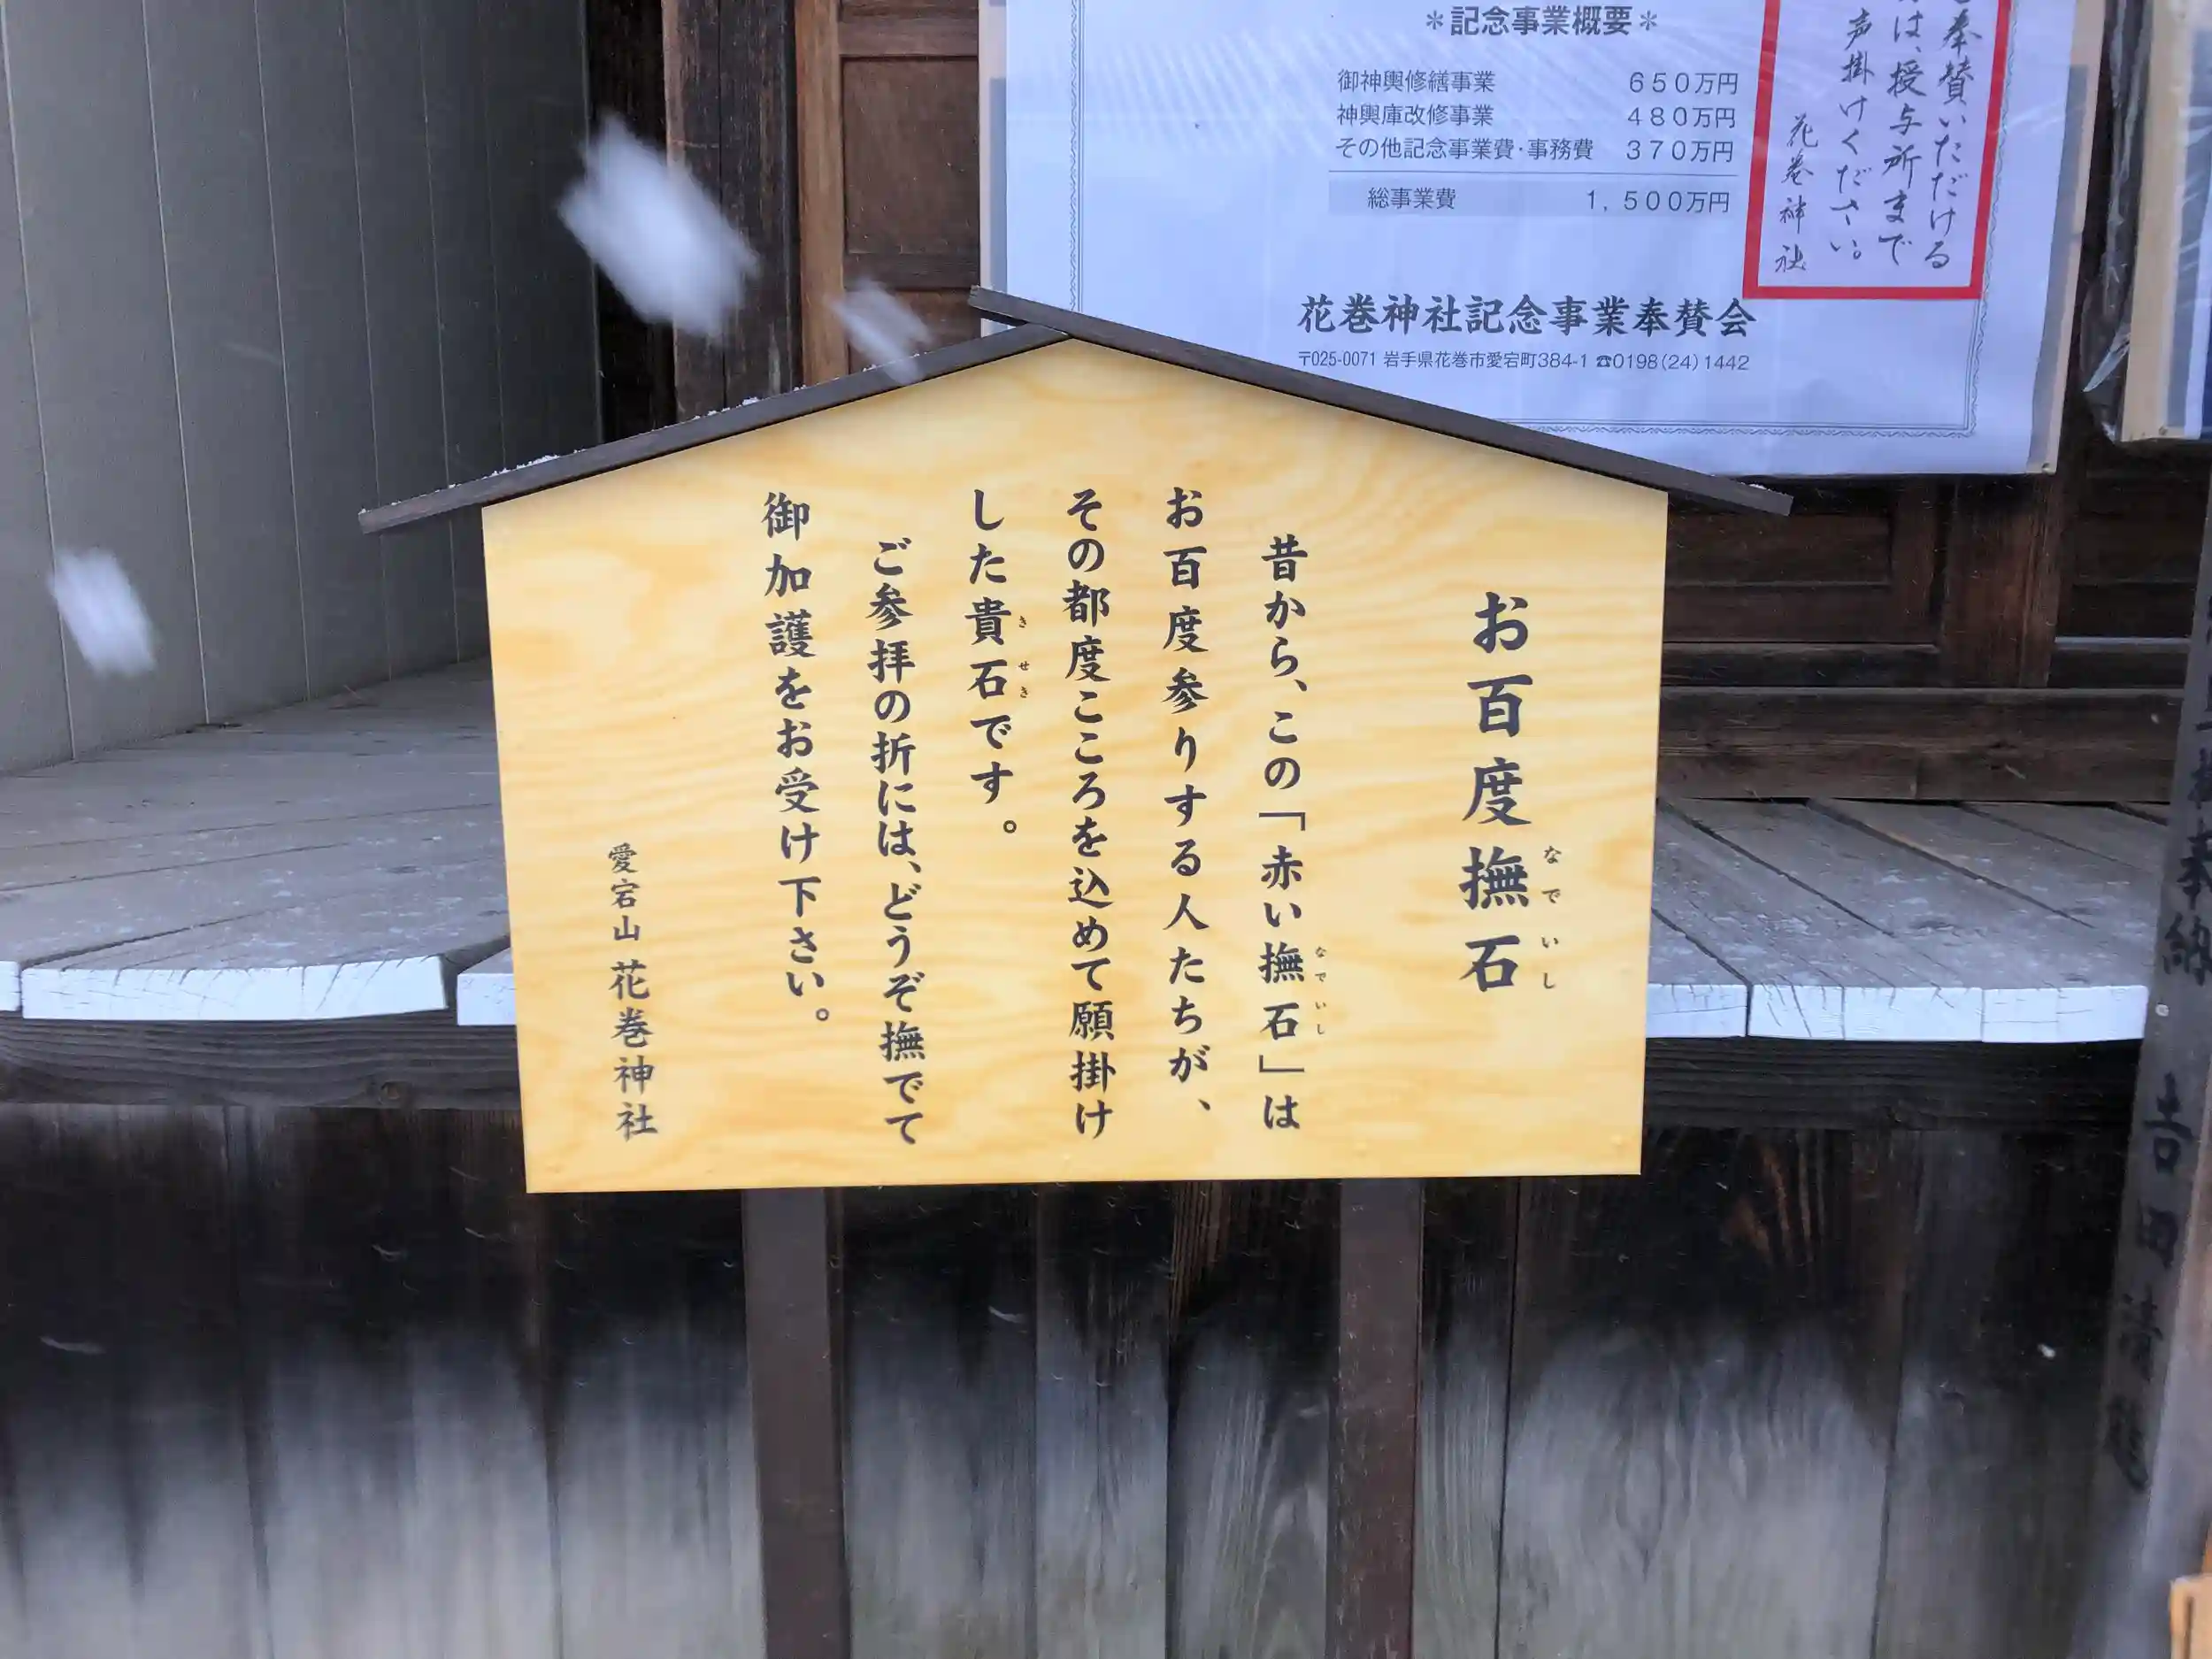 ＊記念事業概要＊
御神輿修繕事業　650万円
神輿庫改修事業　480万円
その他記念事業費・事務費　370万円
総事業費　1,500万円
奉賛いただける
は、授与所まで
声掛けください。
花巻神社
花巻神社記念事業奉賛会
〒025-0071 岩手県花巻市愛宕町384-1 ☎0198(24)1442
お百度撫石
なでいし
昔から、この「赤い撫石」は
なでいし
お百度参りする人たちが、
その都度こころを込めて願掛け
した貴石です。
きせき
ご参拝の折には、どうぞ撫でて
御加護をお受け下さい。
愛宕山 花巻神社
奉納
吉田清